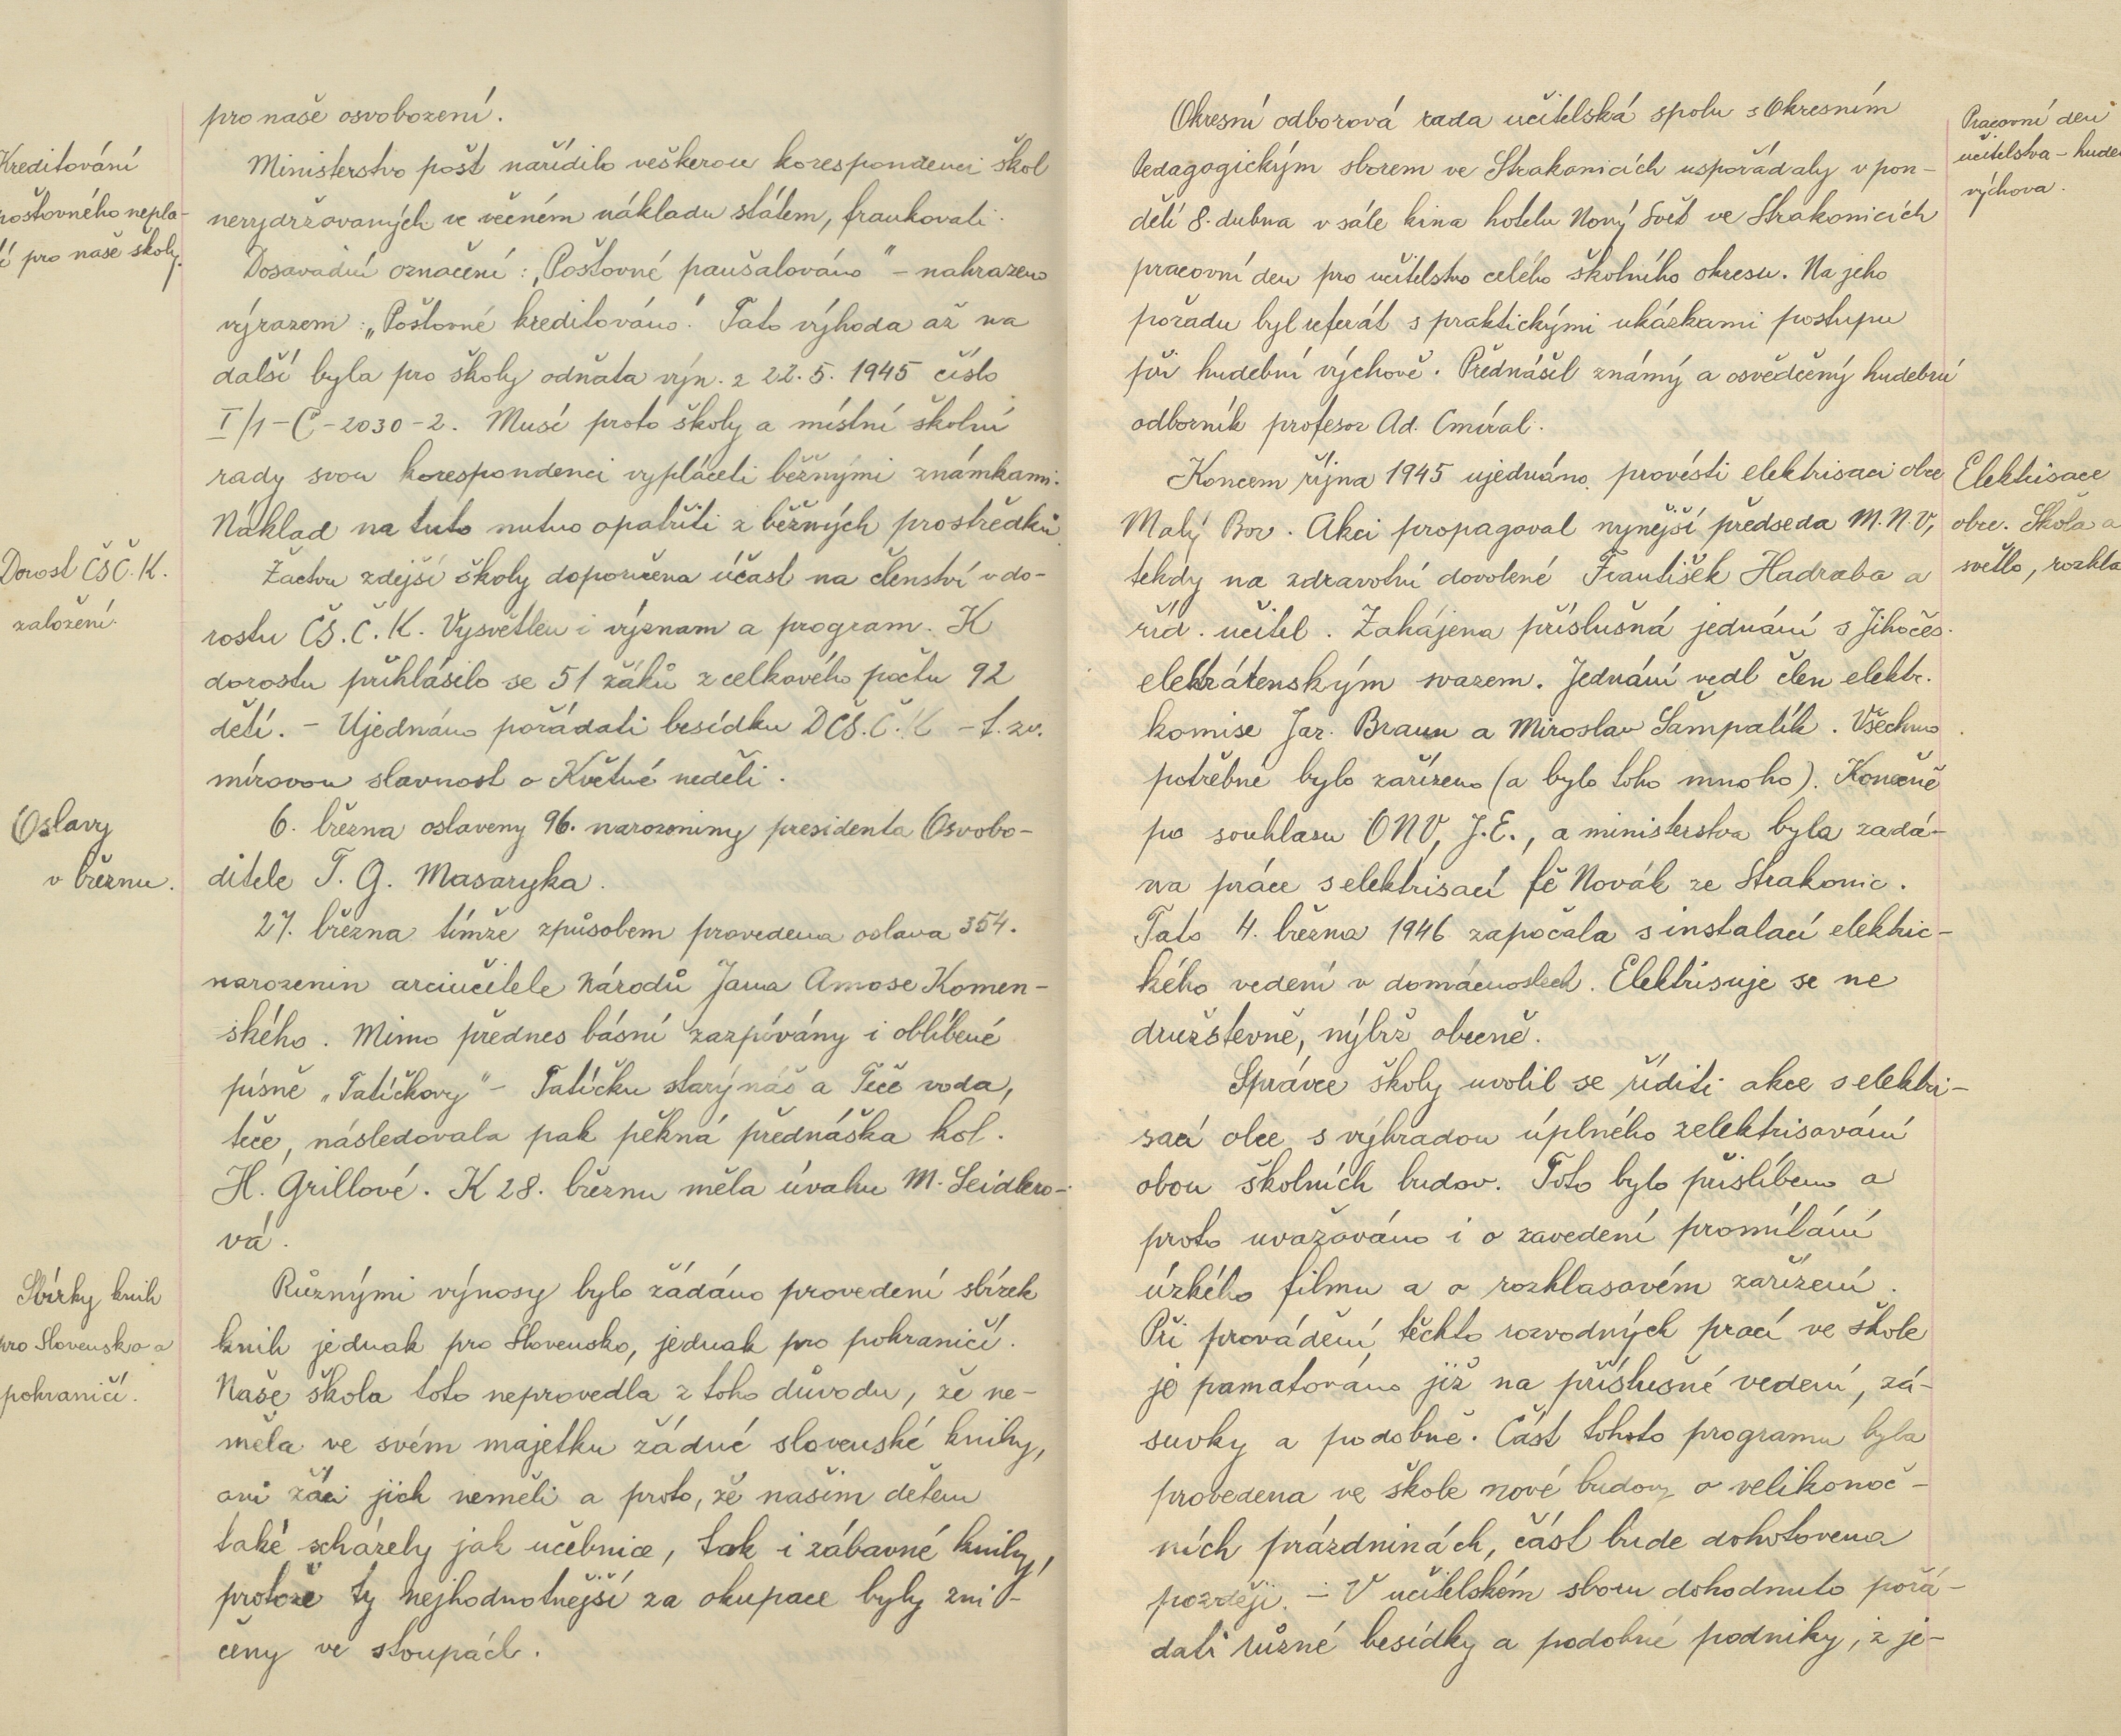 pro naše osvobození.
Kreditování
poštovného nepla-
tí pro naše školy.
Ministerstvo pošt nařídilo veškerou korespondenci škol
nevydržovaných ve věcném nákladu státem, frankovati.
Dosavadní označení: „Poštovné paušalováno" - nahrazeno
výrazem: „Poštovné kreditováno." Tato výhoda až na
další byla pro školy odňata výn. z 22. 5. 1945 číslo
I/1-C-2030-2. Musí proto školy a místní školní
rady svou korespondenci vypláceti běžnými známkami.
Náklad na tuto nutno opatřiti z běžných prostředků.
Dorost ČSČ.K.
založení.
Žactvu zdejší školy doporučena účast na členství v do-
rostu ČS.Č.K. Vysvětlen i význam a program. K
dorostu přihlásilo se 51 žáků z celkového počtu 92
dětí. - Ujednáno pořádati besídku DČS.Č.K - t. zv.
mírovou slavnost o Květné neděli.
Oslavy
v březnu.
6. března oslaveny 96. narozeniny presidenta Osvobo-
ditele T. G. Masaryka.
27. března tímže způsobem provedena oslava 354.
narozenin arciučitele národů Jana Amose Komen-
ského. Mimo přednes básní zazpívány i oblíbené
písně „Tatíčkovy" - Tatíčku starý náš a Teče voda,
teče, následovala pak pěkná přednáška kol.
H. Grillové. K 28. březnu měla úvahu M. Seidlero-
vá.
Sbírky knih
pro Slovensko a
pohraničí.
Různými výnosy bylo žádáno provedení sbírek
knih jednak pro Slovensko, jednak pro pohraničí.
Naše škola toto neprovedla z toho důvodu, že ne-
měla ve svém majetku žádné slovenské knihy,
ani žáci jich neměli a proto, že našim dětem
také scházely jak učebnice, tak i zábavné knihy,
protože ty nejhodnotnější za okupace byly zni-
čeny ve stoupách.
Okresní odborová rada učitelská spolu s Okresním
Pedagogickým sborem ve Strakonicích uspořádaly v pon-
dělí 8. dubna v sále kina hotelu Nový Svět ve Strakonicích
pracovní den pro učitelstvo celého školního okresu. Na jeho
pořadu byl referát s praktickými ukázkami postupu
při hudební výchově. Přednášel známý a osvědčený hudební
odborník profesor Ad. Cmíral.
Pracovní den
učitelstva - hude
výchova.
Koncem října 1945 ujednáno provésti elektrisaci obce
Malý Bor. Akci propagoval nynější předseda M.N.V,
tehdy na zdravotní dovolené František Hadraba a
říd. učitel. Zahájena příslušná jednání s Jihočes.
elektrárenským svazem. Jednání vedl člen elektr.
komise Jar. Braun a Miroslav Šampalík. Všechno
potřebné bylo zařízeno (a bylo toho mnoho). Konečně
po souhlasu ONV, J.E., a ministerstva byla zadá-
na práce s elektrisací fě Novák ze Strakonic.
Tato 4. března 1946 započala s instalací elektric-
kého vedení v domácnostech. Elektrisuje se ne
družstevně, nýbrž obecně.
Elektrisace
obce. Škola a
světlo, rozhla
Správce školy uvolil se říditi akce s elektri-
sací obce s výhradou úplného zelektrisování
obou školních budov. Toto bylo přislíbeno a
proto uvažováno i o zavedení promítání
úzkého filmu a o rozhlasovém zařízení.
Při provádění těchto rozvodných prací ve škole
je pamatováno již na příslušné vedení, zá-
suvky a podobně. Část tohoto programu byla
provedena ve škole nové budovy o velikonoč-
ních prázdninách, část bude dohotovena
později. - V učitelském sboru dohodnuto pořá-
dati různé besídky a podobné podniky, z je-